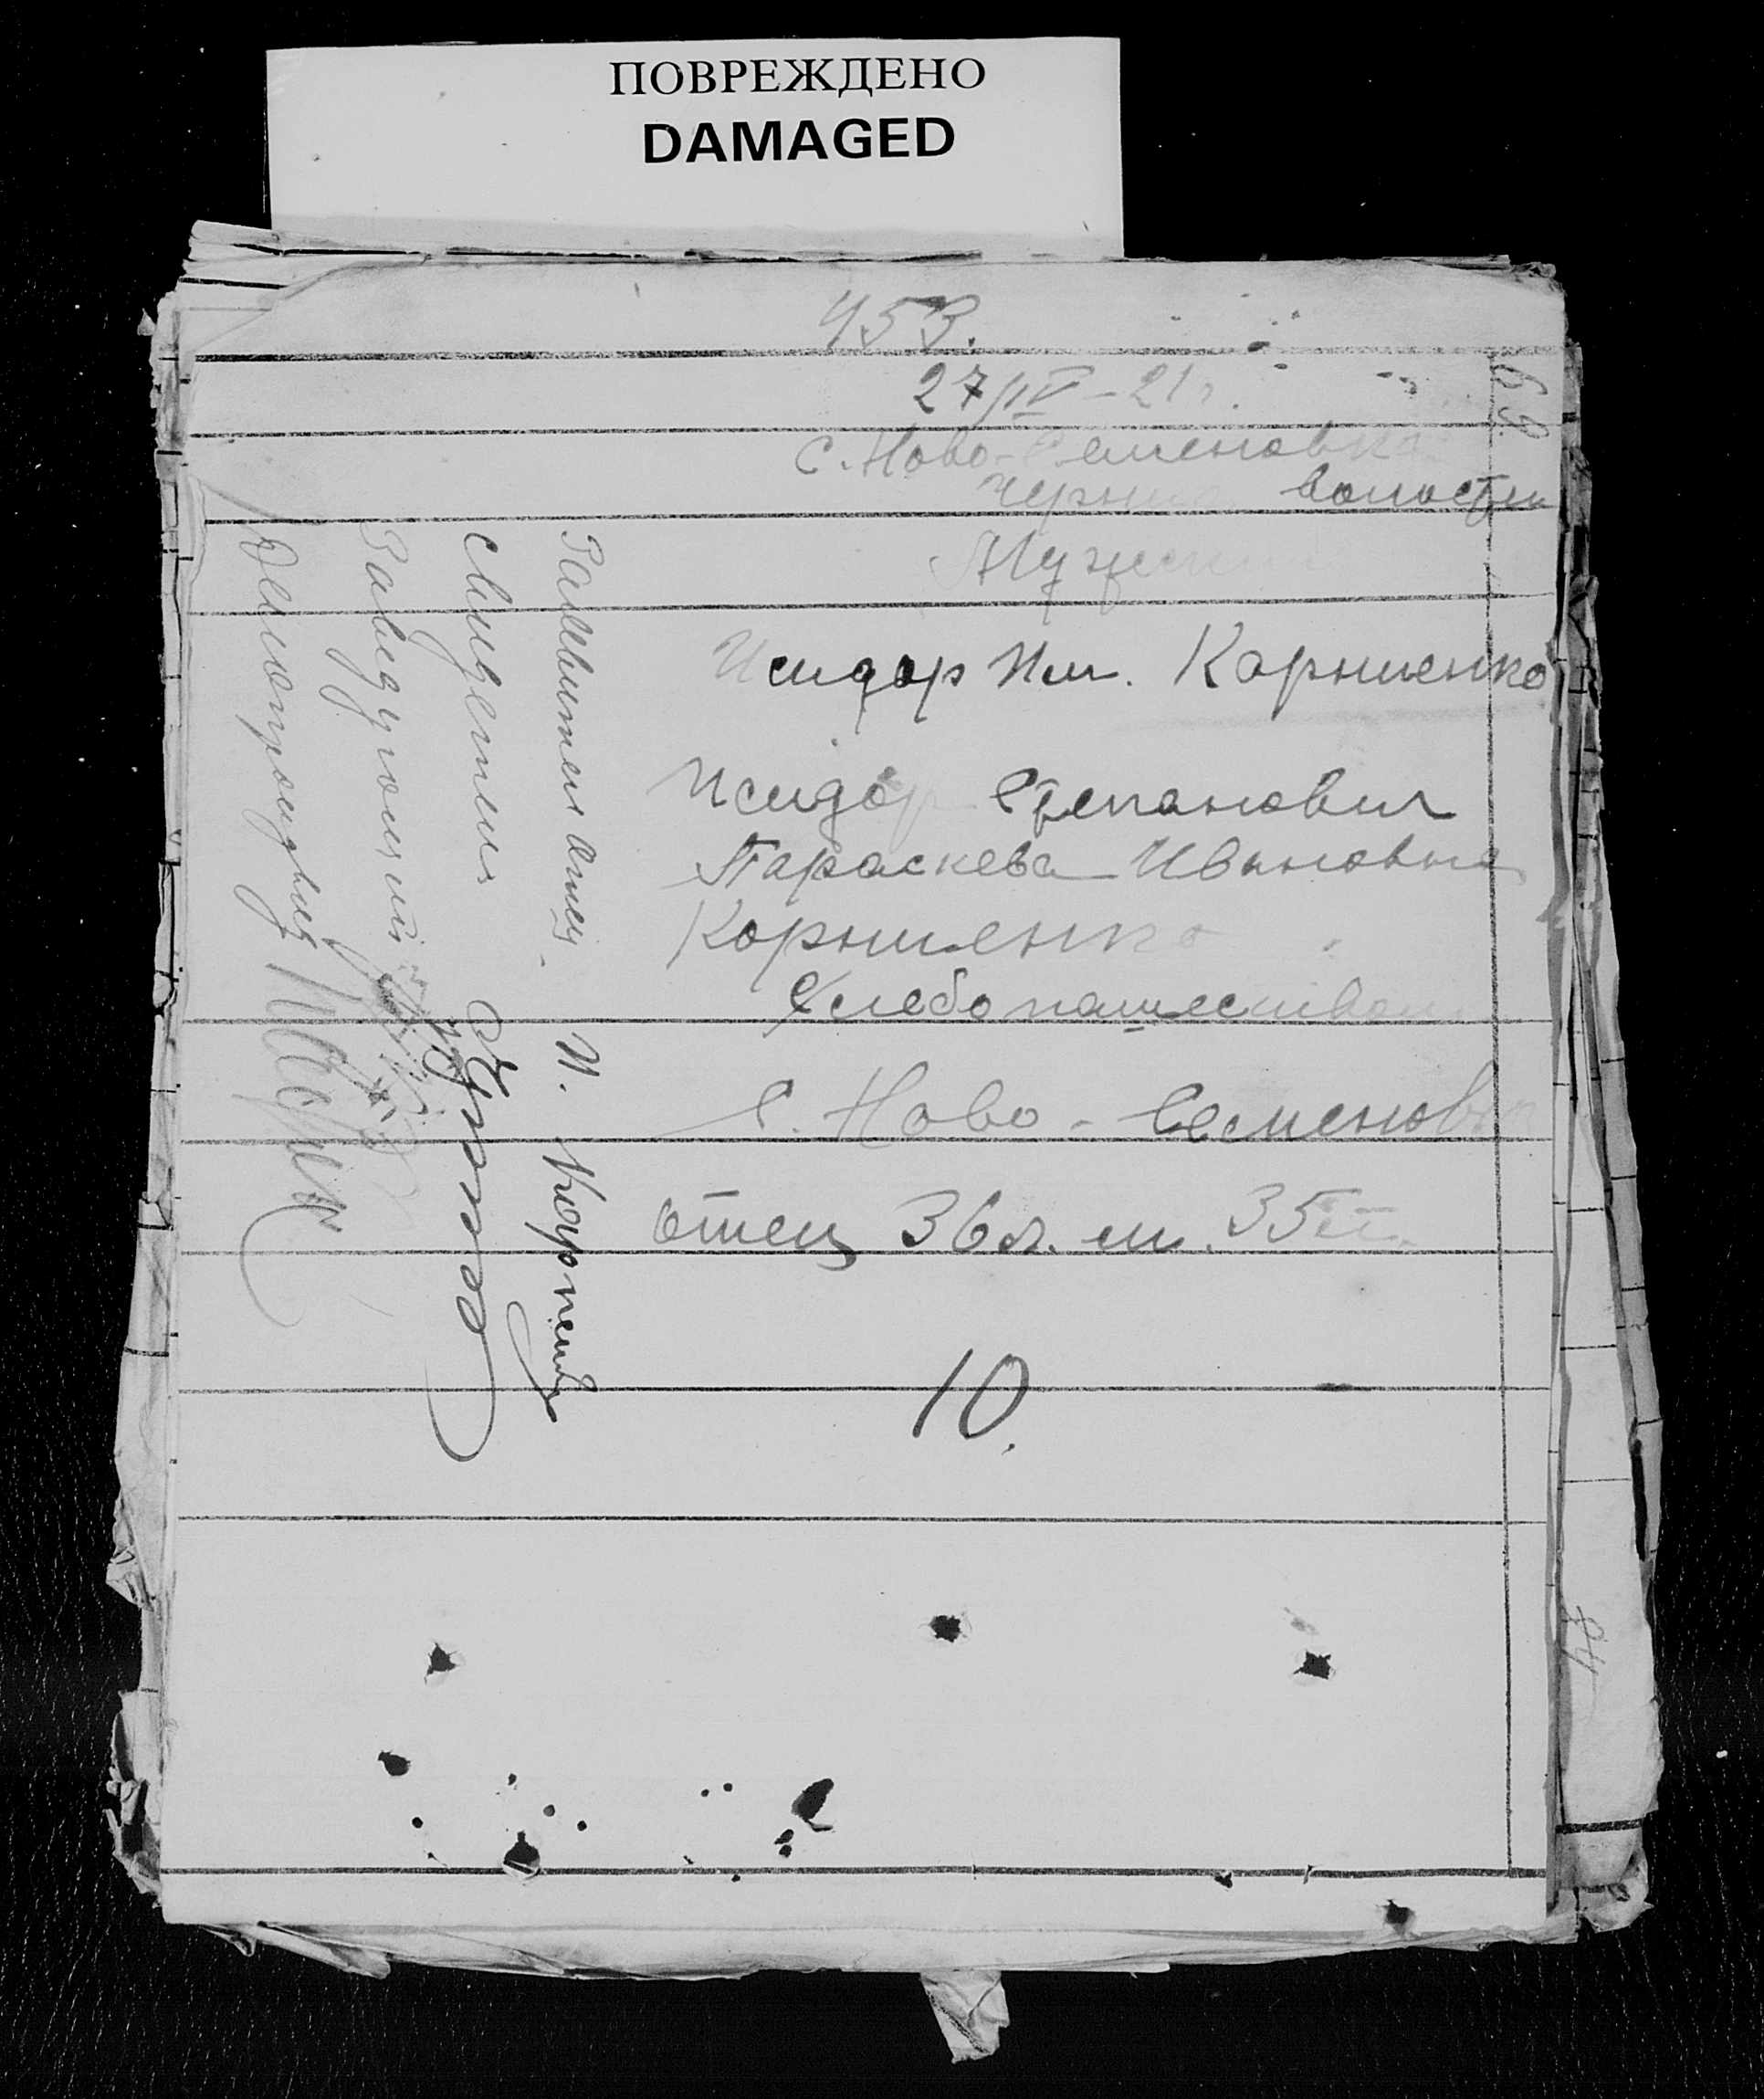 ПОВРЕЖДЕНО
DAMAGED
453.
27/IV - 21 г.
с. Ново-Семеновка
волости
Мужск
Исидор Ис. Корниенко
Исидор Степанович
Параскева Ивановна
Корниенко
Хлебопашеством
С. Ново-Семеновка
отец 36 л. м. 35 л.
10.
Заявители отец.
И. Корниенко
Свидетели
Заведующий
Делопроизвод
84